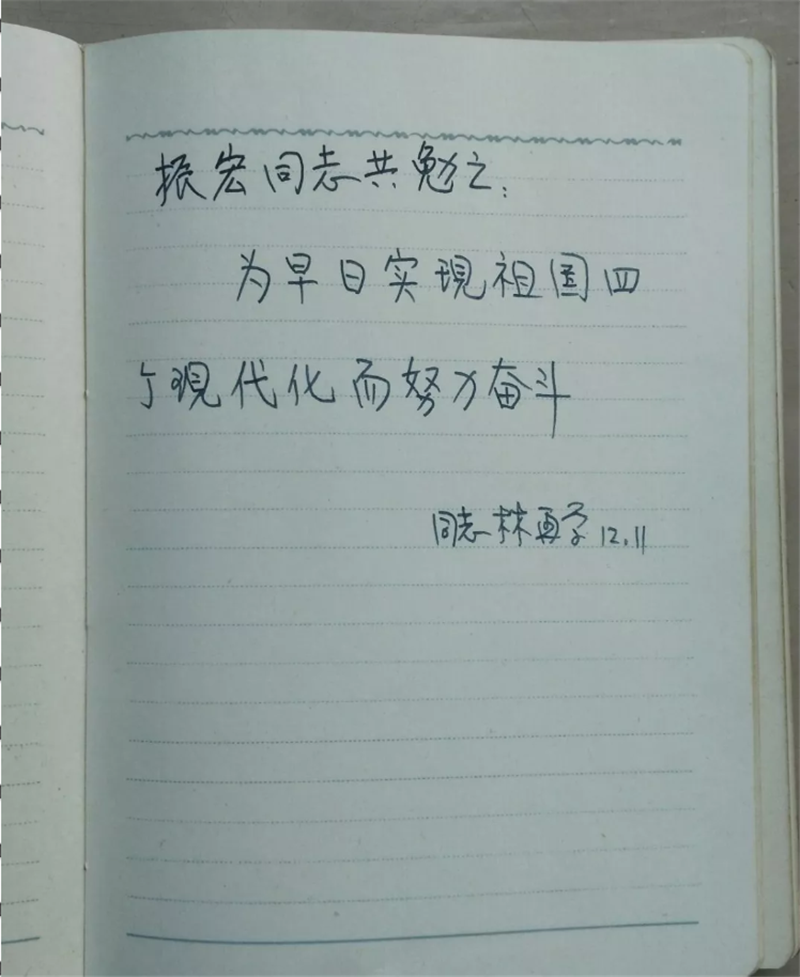 振宏同志共勉之：
为早日实現祖国四
个現代化而努力奋斗
同志林再学 12.11